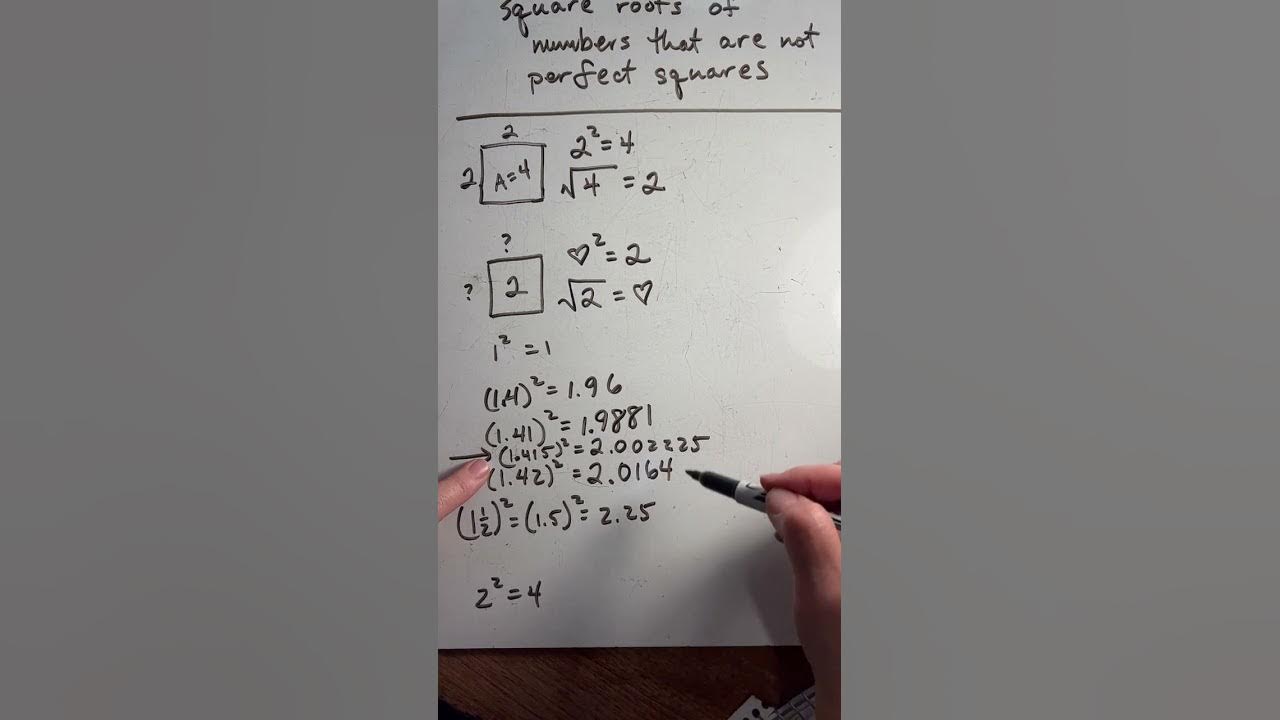 square roots of
numbers that are not
perfect squares
2
2² = 4
2 A=4
√4 = 2
?
♡² = 2
? 2
√2 = ♡
1² = 1
(1.4)² = 1.96
(1.41)² = 1.9881
→ (1.415)² = 2.002225
(1.42)² = 2.0164
(1½)² = (1.5)² = 2.25
2² = 4